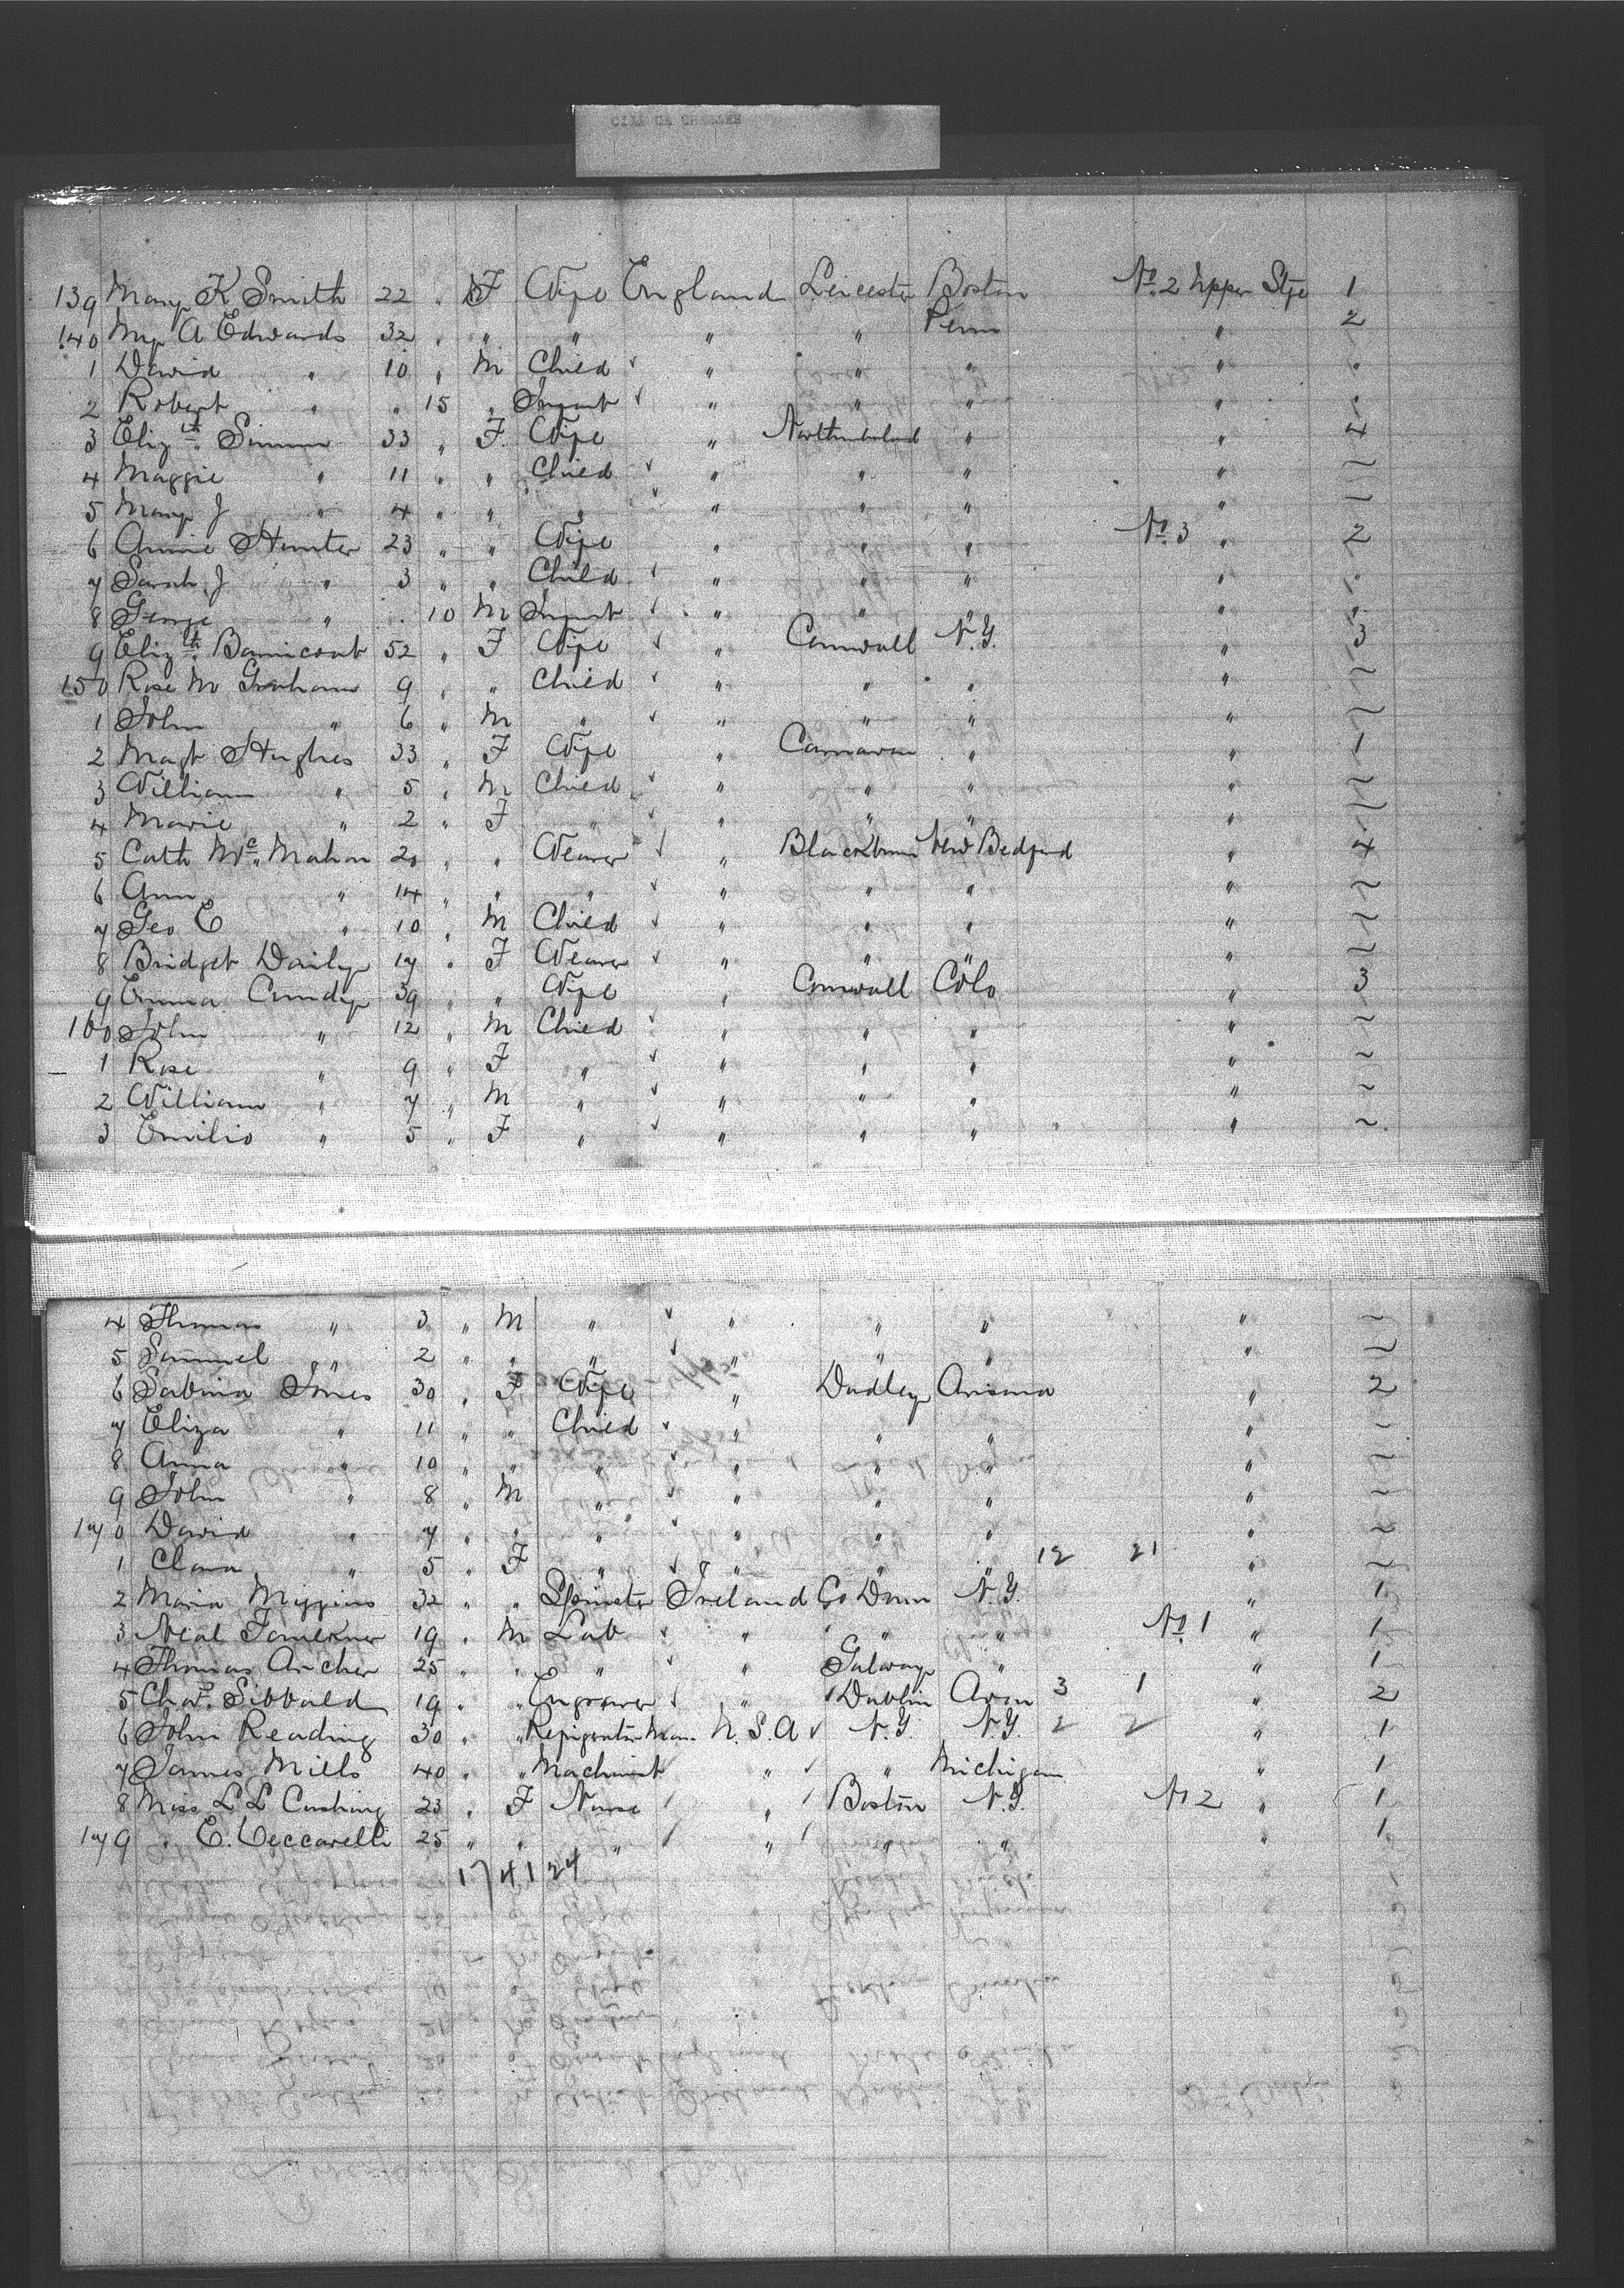 CITY OF CHESTER
139 Mary K Smith 22 " F Wife England Leicester Boston No. 2 Upper Stge 1
140 My A Edwards 32 " " " " " Penn " 2
1 David " 10 " M Child " " " " "
2 Robert " " 15 " Infant " " " " "
3 Elizth Simm 33 " F. Wife " Northumberland " " 4
4 Maggie " 11 " " Child " " " " ~
5 Mary J " 4 " " " " " " " ~
6 Annie Hunter 23 " " Wife " " " No. 3 " 2
7 Sarah J " 3 " " Child " " " " "
8 George " " 10 M Infant " " " " "
9 Elizth Bannicoat 52 " F Wife " Cornwall N.Y. " 3
150 Rose M Graham 9 " " Child " " " " ~
1 John " 6 " M " " " " " ~
2 Magt Hughes 33 " F Wife " Carnavon " " 1
3 William " 5 " M Child " " " " ~
4 Marie " 2 " F " " " " " ~
5 Cath McMahon 20 " " Weaver " Blackburn New Bedford " 4
6 Ann " 14 " " " " " " " ~
7 Geo E " 10 " M Child " " " " ~
8 Bridget Daily 17 " F Weaver " " " " ~
9 Emma Cundy 39 " " Wife " Cornwall Colo " 3
160 John " 12 " M Child " " " " ~
1 Rose " 9 " F " " " " " ~
2 William " 7 " M " " " " " ~
3 Emilio " 5 " F " " " " " ~
4 Thomas " 3 " M " " " " " ~
5 Samuel " 2 " " " " " " " ~
6 Sabina Jones 30 " F Wife " Dudley Arisona " 2
7 Eliza " 11 " " Child " " " " ~
8 Anna " 10 " " " " " " " ~
9 John " 8 " M " " " " " ~
170 David " 7 " " " " " " " ~
1 Clara " 5 " F " " " " 12 21 " ~
2 Maria Miggins 32 " " Spinster Ireland Co Down N.Y. " 1
3 Neal Faulkner 19 " M Lab " " " No. 1 " 1
4 Thomas Archer 25 " " " " Galway " " 1
5 Chas. Sibbald 19 " " Engraver " Dublin 3 1 " 2
6 John Reading 30 " " Refrigerator Man. U.S.A N.Y. N.Y. 2 2 " 1
7 James Mills 40 " " Machinist " " Michigan " 1
8 Miss L L Cushing 23 " F Nurse " Boston N.Y. No 2 " 1
179 " E. Ceccarelli 25 " " " " " " " 1
17 41 24